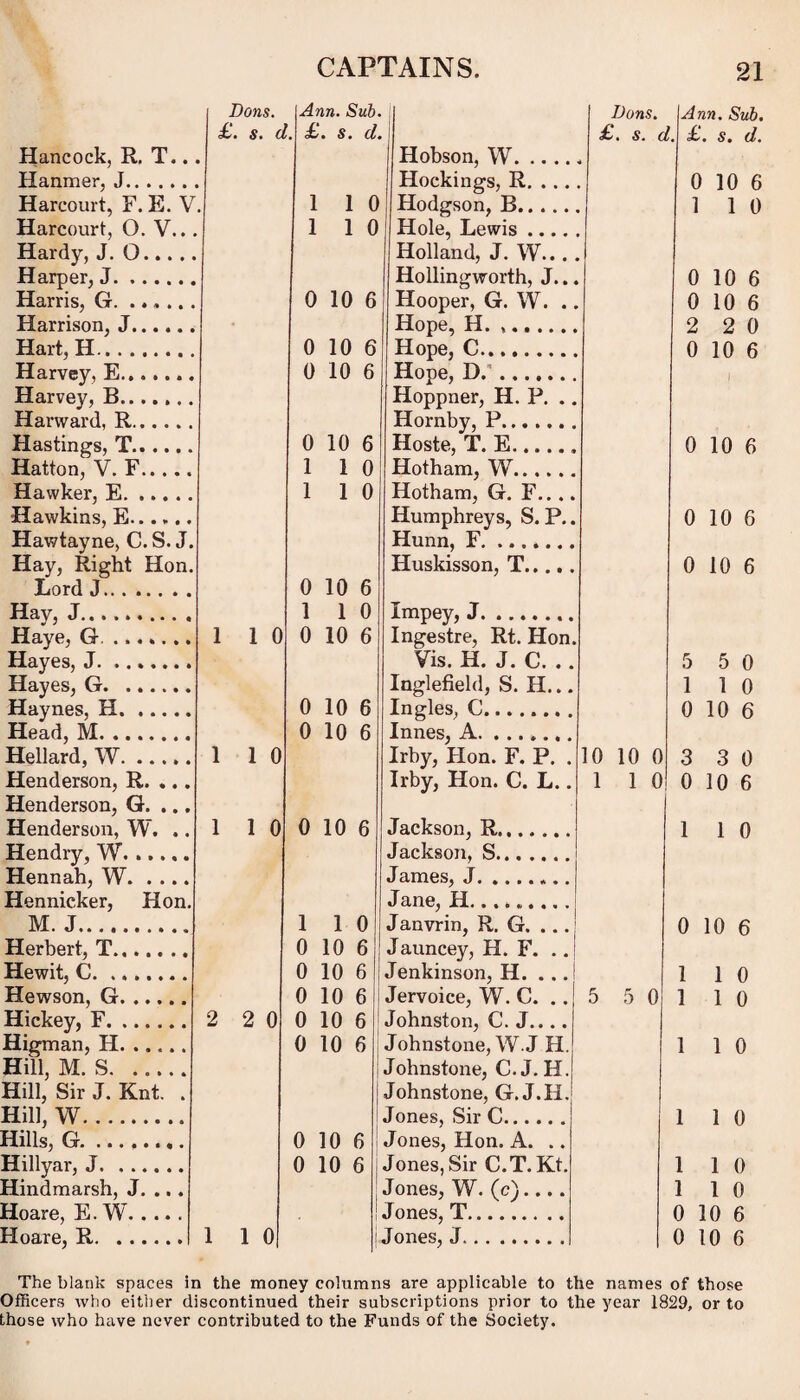 CAPTAINS. 21
Dons. Ann. Sub.
£. s. d. £. s. d.
Hancock, R. T...
Hanmer, J.......
Harcourt, F. E. V. 1 1 0
Harcourt, O. V... 1 1 0
Hardy, J. O.....
Harper, J.......
Harris, G....... 0 10 6
Harrison, J......
Hart, H......... 0 10 6
Harvey, E....... 0 10 6
Harvey, B.......
Harward, R......
Hastings, T...... 0 10 6
Hatton, V. F..... 1 1 0
Hawker, E...... 1 1 0
Hawkins, E......
Hawtayne, C. S. J.
Hay, Right Hon.
Lord J........ 0 10 6
Hay, J.......... 1 1 0
Haye, G........ 1 1 0 0 10 6
Hayes, J........
Hayes, G.......
Haynes, H...... 0 10 6
Head, M........ 0 10 6
Hellard, W...... 1 1 0
Henderson, R. ...
Henderson, G. ...
Henderson, W. .. 1 1 0 0 10 6
Hendry, W......
Hennah, W.....
Hennicker, Hon.
M. J.......... 1 1 0
Herbert, T....... 0 10 6
Hewit, C........ 0 10 6
Hewson, G...... 0 10 6
Hickey, F....... 2 2 0 0 10 6
Higman, H...... 0 10 6
Hill, M. S. .....
Hill, Sir J. Knt. .
Hill, W.........
Hills, G......... 0 10 6
Hillyar, J....... 0 10 6
Hindmarsh, J. ...
Hoare, E. W.....
Hoare, R. ...... 1 1 0
Dons. Ann. Sub.
£. s. d. £. s. d.
Hobson, W.......
Hockings, R..... 0 10 6
Hodgson, B...... 1 1 0
Hole, Lewis .....
Holland, J. W....
Hollingworth, J... 0 10 6
Hooper, G. W. .. 0 10 6
Hope, H. ....... 2 2 0
Hope, C......... 0 10 6
Hope, D. .......
Hoppner, H. P. ..
Hornby, P.......
Hoste, T. E...... 0 10 6
Hotham, W......
Hotham, G. F....
Humphreys, S. P.. 0 10 6
Hunn, F........
Huskisson, T..... 0 10 6
Impey, J........
Ingestre, Rt. Hon.
Vis. H. J. C. .. 5 5 0
Inglefield, S. H... 1 1 0
Ingles, C........ 0 10 6
Innes, A........
Irby, Hon. F. P. . 10 10 0 3 3 0
Irby, Hon. C. L.. 1 1 0 0 10 6
Jackson, R....... 1 1 0
Jackson, S.......
James, J........
Jane, H.........
Janvrin, R. G. ... 0 10 6
Jauncey, H. F. ..
Jenkinson, H. ... 1 1 0
Jervoice, W. C. .. 5 5 0 1 1 0
Johnston, C. J....
Johnstone, W. J H. 1 1 0
Johnstone, C. J. H.
Johnstone, G. J. H.
Jones, Sir C...... 1 1 0
Jones, Hon. A. ..
Jones, Sir C. T. Kt. 1 1 0
Jones, W. (c).... 1 1 0
Jones, T......... 0 10 6
Jones, J......... 0 10 6
The blank spaces in the money columns are applicable to the names of those
Officers who either discontinued their subscriptions prior to the year 1829, or to
those who have never contributed to the Funds of the Society.